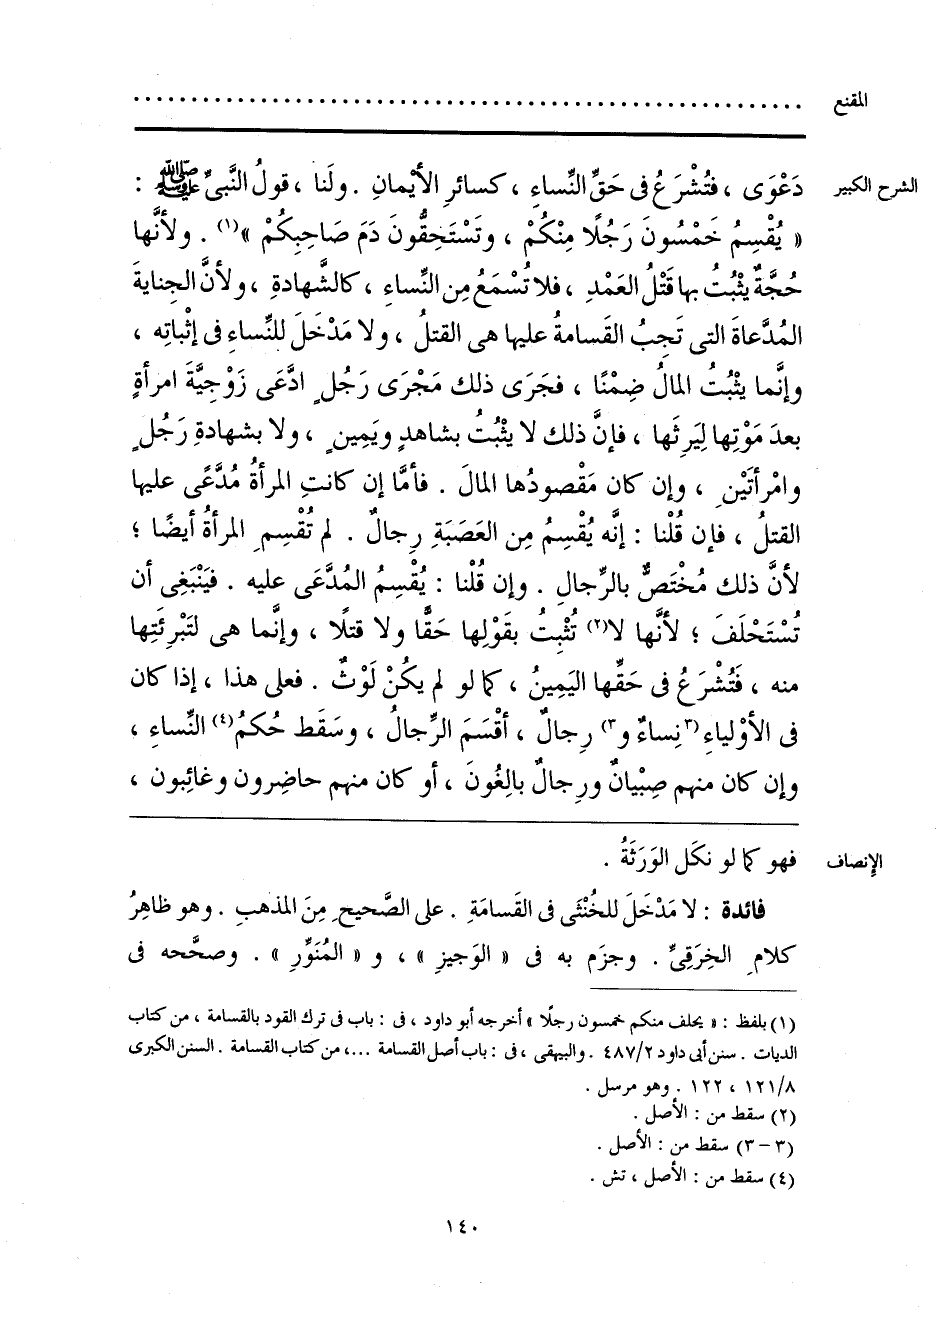 المقنع ................................................................
الشرح الكبير دَعْوَى ، فتُشْرَعُ فى حَقِّ النِّساءِ ، كسائرِ الأيْمانِ . ولَنا ، قولُ النَّبىِّ ﷺ :
« يُقْسِمُ خَمْسُونَ رَجُلًا مِنْكُمْ ، وتَسْتَحِقُّونَ دَمَ صَاحِبِكُمْ »(١) . ولأنَّها
حُجَّةٌ يثْبُتُ بها قَتْلُ العَمْدِ ، فلا تُسْمَعُ مِن النِّساءِ ، كالشَّهادةِ ، ولأنَّ الجِنايةَ
المُدَّعاةَ التى تَجِبُ القَسامةُ عليها هى القتلُ ، ولا مَدْخَلَ للنِّساءِ فى إثْباتِه ،
وإنَّما يثْبُتُ المالُ ضِمْنًا ، فجَرَى ذلك مَجْرَى رَجُلٍ ادَّعَى زَوْجِيَّةَ امرأةٍ
بعدَ مَوْتِها لِيَرِثَها ، فإنَّ ذلك لا يثْبُتُ بشاهدٍ ويَمِينٍ ، ولا بشهادةِ رَجُلٍ
وامْرأتَيْنِ ، وإن كان مَقْصودُها المالَ . فأمَّا إن كانتِ المرأةُ مُدَّعًى عليها
القتلُ ، فإن قُلْنا : إنَّه يُقْسِمُ مِن العَصَبَةِ رِجالٌ . لم تُقْسِمِ المرأةُ أيضًا ؛
لأنَّ ذلك مُخْتَصٌّ بالرِّجالِ . وإن قُلْنا : يُقْسِمُ المُدَّعَى عليه . فيَنْبَغِى أن
تُسْتَحْلَفَ ؛ لأنَّها لا(٢) تُثْبِتُ بقَوْلِها حَقًّا ولا قتلًا ، وإنَّما هى لتَبْرِئَتِها
منه ، فتُشْرَعُ فى حَقِّها اليَمِينُ ، كما لو لم يكُنْ لَوْثٌ . فعلى هذا ، إذا كان
فى الأوْلياءِ (٣نِساءٌ و٣) رِجالٌ ، أقْسَمَ الرِّجالُ ، وسَقَط حُكمُ(٤) النِّساءِ ،
وإن كان منهم صِبْيانٌ ورِجالٌ بالِغُونَ ، أو كان منهم حاضِرون وغائِبون ،
الإنصاف فهو كما لو نكَل الوَرَثَةُ .
فائدة : لا مَدْخَلَ للخُنْثَى فى القَسامَةِ . على الصَّحيحِ مِنَ المذهبِ . وهو ظاهِرُ
كلامِ الخِرَقِىِّ . وجزَم به فى « الوَجيزِ » ، و « المُنَوِّرِ » . وصحَّحه فى
(١) بلفظ : « يحلف منكم خمسون رجلًا » أخرجه أبو داود ، فى : باب فى ترك القود بالقسامة ، من كتاب
الديات . سنن أبى داود ٤٨٧/٢ . والبيهقى ، فى : باب أصل القسامة ... ، من كتاب القسامة . السنن الكبرى
١٢١/٨ ، ١٢٢ . وهو مرسل .
(٢) سقط من : الأصل .
(٣ - ٣) سقط من : الأصل .
(٤) سقط من : الأصل ، تش .
١٤٠